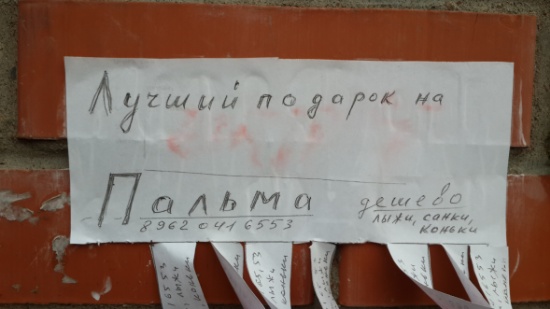 Лучший подарок на
Пальма дешево
8962 041 6553 лыжи, санки,
коньки